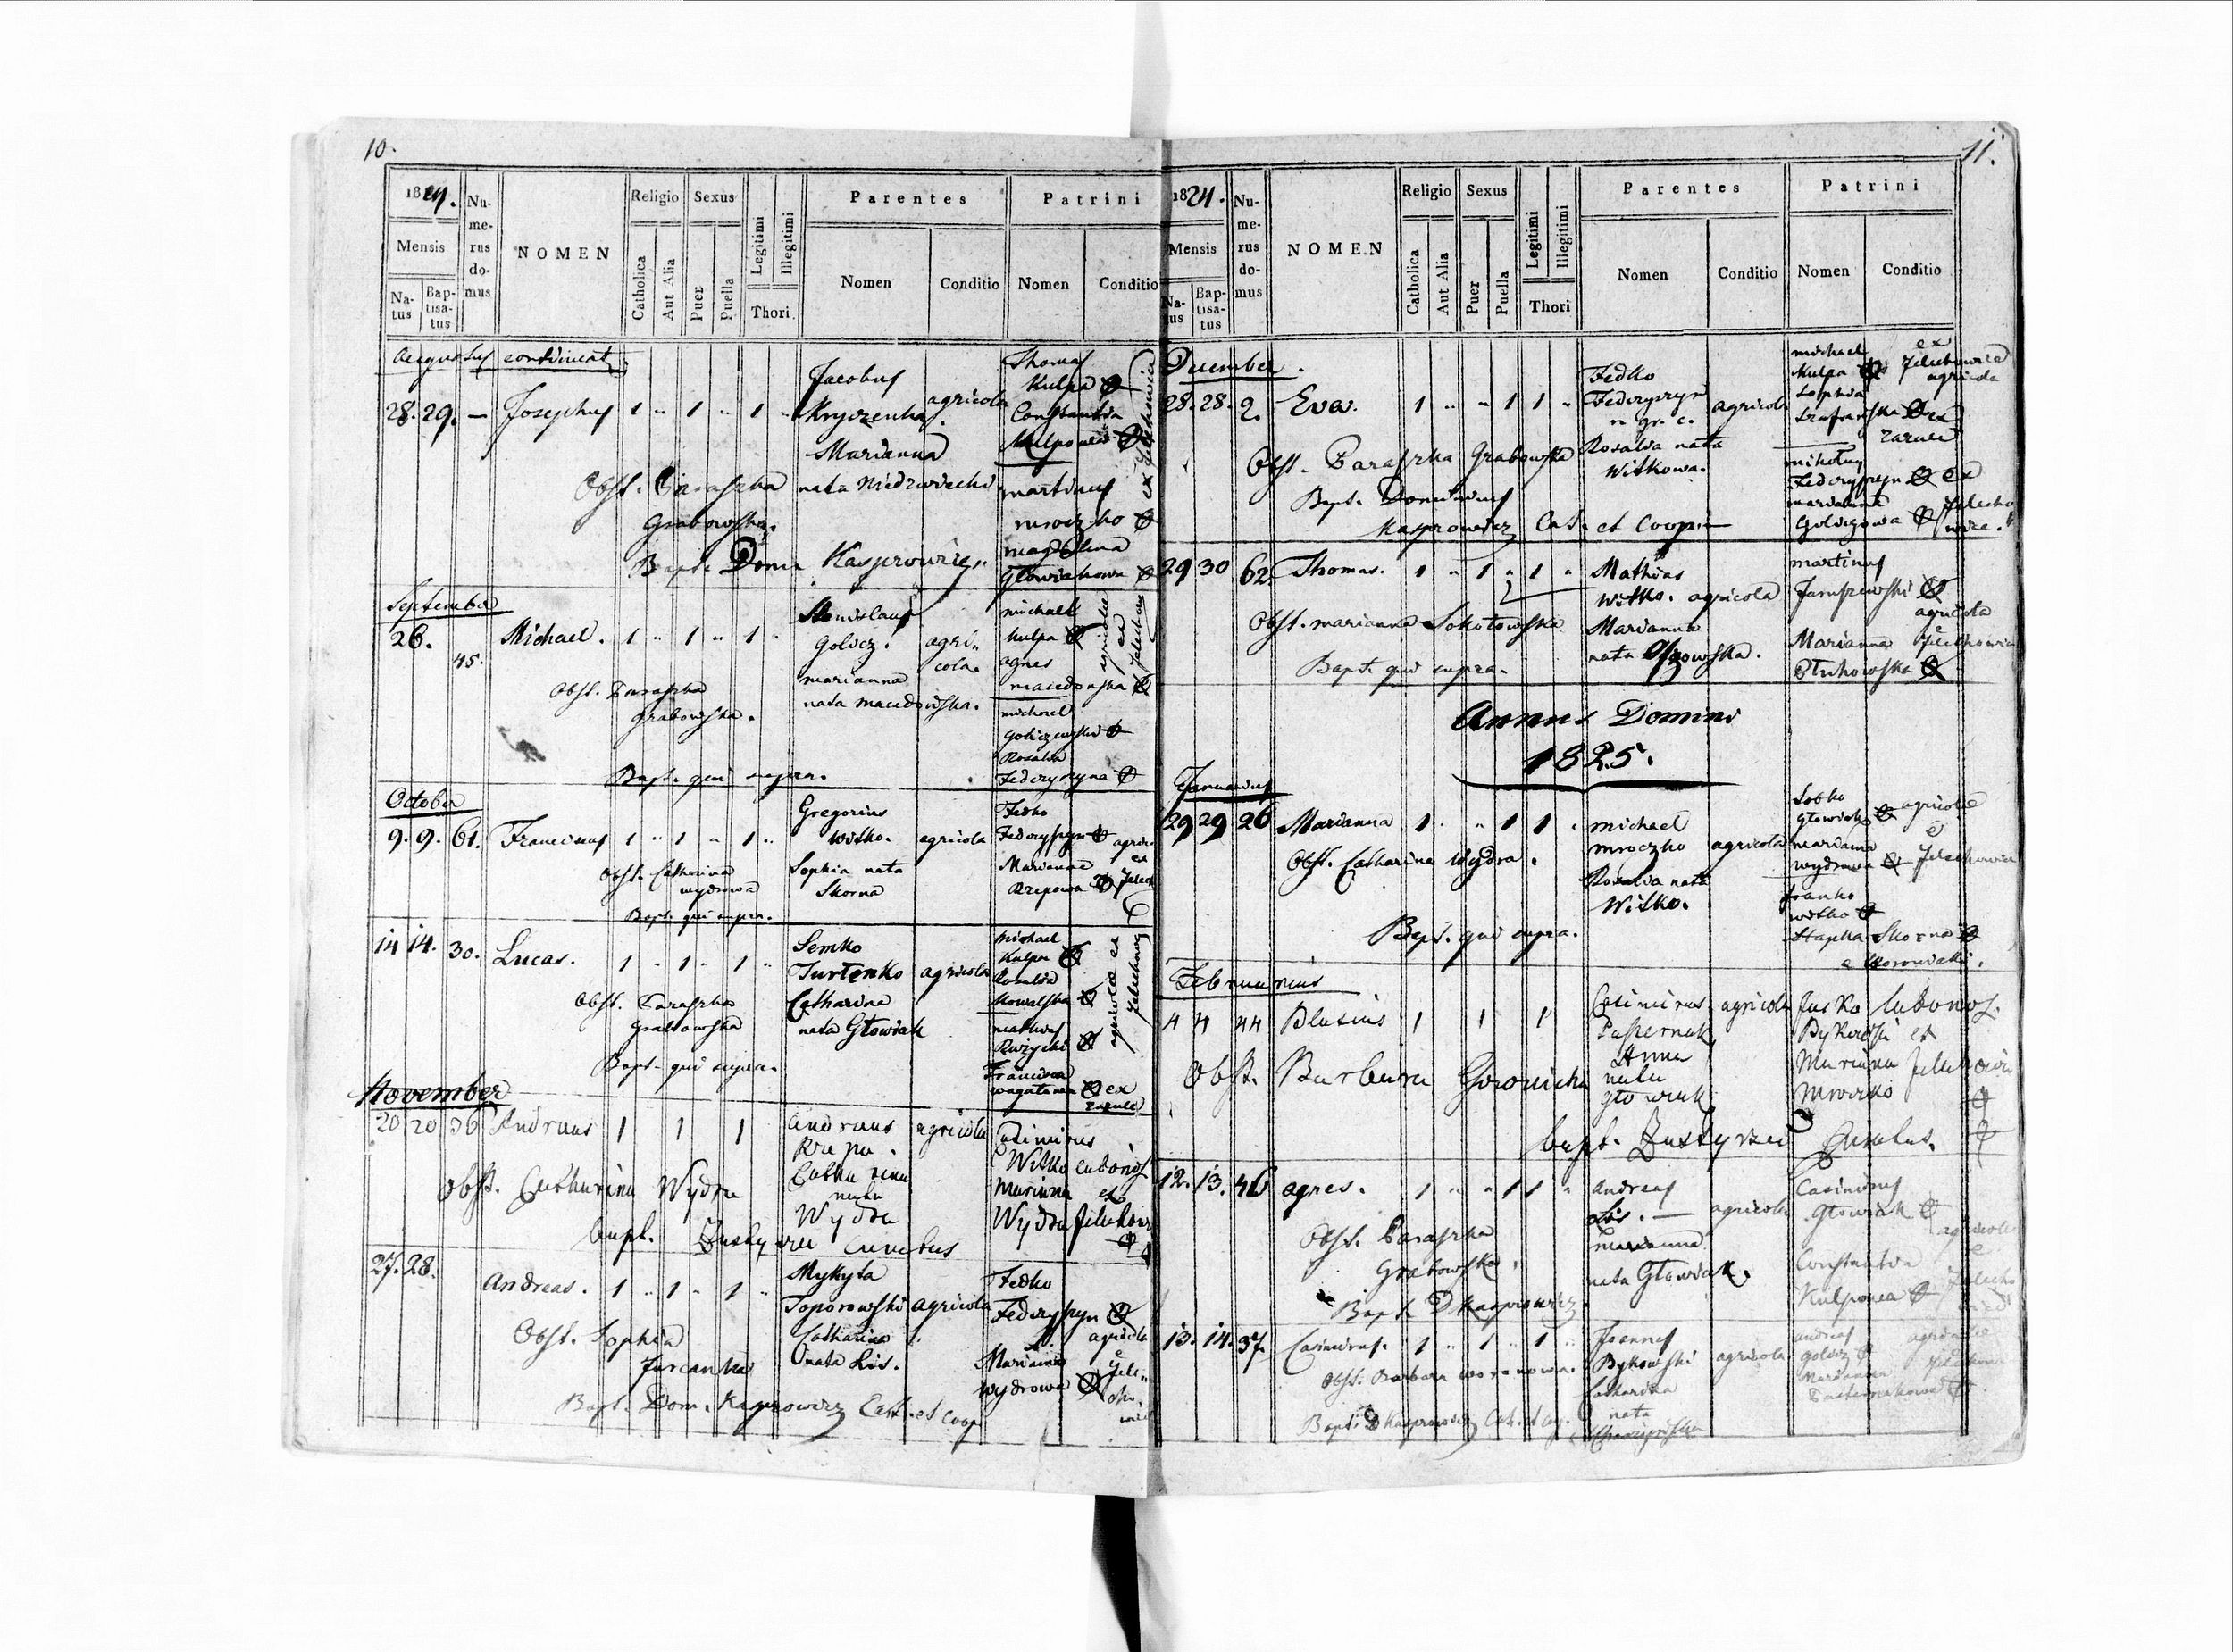 10.
1824.
Mensis
Na-
tus
Bap-
tisa-
tus
Nu-
me-
rus
do-
mus
NOMEN
Religio
Catholica
Aut Alia
Sexus
Puer
Puella
Legitimi
Illegitimi
Thori.
Parentes
Nomen
Conditio
Patrini
Nomen
Conditio
Augustus continuat
28. 29. — Josephus 1 " 1 " 1 "
Jacobus
Kryczenka agricola
Marianna
nata Niedzwiecki
Thomas
Kulpa
Constantia
Kulpowa
Martinus
Mroczko
Magdalena
Głowiakowa
ex Jelechowice
Obst. Paraszka
Grabowska.
Bapt. Dom. Kasprowicz
September
26. 45. Michael. 1 " 1 " 1 "
Stanislaus
Golicz. agri-
cola
Marianna
nata Macedońska.
Michael
Kulpa
Agnes
Macedońska
Michael
Goliczewski
Rosalia
Fedoryszyna
Obst. Paraszka
Grabowska.
Bapt. qui supra.
October
9. 9. 61. Franciscus 1 " 1 " 1 "
Gregorius
Witko. agricola
Sophia nata
Skorna
Fedko
Fedoryszyn
Marianna
Rzepowa
Obst. Catharina
Wydrowa
Bapt. qui supra.
14 14. 30. Lucas. 1 " 1 " 1 "
Semko
Turtenko agricola
Catharina
nata Głowiak
Michael
Kulpa
Rosalia
Kowalska
Mathias
Rużycki
Francisca
ex
Obst. Paraszka
Grabowska
Bapt. qui supra.
November
20 20 36 Andreas 1 1 1
Andreas agricola
Rzepa.
Catharina
nata
Wydra
Casimirus
Witko laborios.
Marianna et
Wydra Jelechow
Obst. Catharina Wydra
bapt. Zustyrzei Curatus
27. 28. Andreas. 1 " 1 " 1 "
Mykyta
Toporowski agricola
Catharina
nata Lis.
Fedko
Fedoryszyn
agricola
Marianna
Wydrowa
e
Jele-
cho-
wice
Obst. Sophia
Bapt. Dom. Kasprowicz Cat. et Coop.
11.
1824.
Mensis
Na-
tus
Bap-
tisa-
tus
Nu-
me-
rus
do-
mus
NOMEN
Religio
Catholica
Aut Alia
Sexus
Puer
Puella
Legitimi
Illegitimi
Thori
Parentes
Nomen
Conditio
Patrini
Nomen
Conditio
December.
28. 28. 2. Eva. 1 " " 1 1 "
Fedko
Fedoryszyn
r. gr. c. agricola
Rosalia nata
Witkowa.
Michael
Kulpa ex Jelechowice
agricola
Sophia
Szafrańska ex
Mikołay
Fedoryszyn ex
Marianna
Goliczowa Jelecho-
wice.
Obst. Paraszka Grabowska
Bapt. Dominicus
Kasprowicz Cat. et Coop.
29 30 62 Thomas. 1 " 1 " 1 "
Mathias
Witko. agricola
Marianna
nata
Martinus
Januszewski
agricola
e
Marianna Jelechowice
Obst. Marianna Sokołowska
Bapt. qui supra.
Annus Domini
1825.
Januarius
29 29 26 Marianna 1 " " 1 1 "
Michael
Mroczko agricola
Rosalia nata
Witko.
Sobko
Głowiak agricolae
e
Marianna
Wydrowa Jelechowice
Franko
Witko
Skorna
Obst. Catharina Wydra.
Bapt. qui supra.
Februarius
4 4 44 Blasius 1 1 1
Casimirus agricola
Pasternak
Anna
nata
Głowiak
Jusko laborios.
Bykowski et
Marianna Jelechowice
Mroczko
Obst. Barbara
bapt. Zustyrzei Curatus.
12. 13. 46 Agnes. 1 " " 1 1 "
Andreas
Lis. — agricola
Marianna
nata Głowiak.
Casimirus
Głowiak
agricolae
e
Constantia
Kulpowa
Jelecho-
wice
Obst. Paraszka
Grabowska.
Bapt. D. Kasprowicz.
13. 14. 37 Casimirus. 1 " 1 " 1 "
Joannes
Bykowski agricola
Catharina
nata
Andreas agricolae
Golicz e
Marianna
Pasternakowa
Obst. Barbara Woronowa.
Bapt. D Kasprowicz Cat. et Coop.